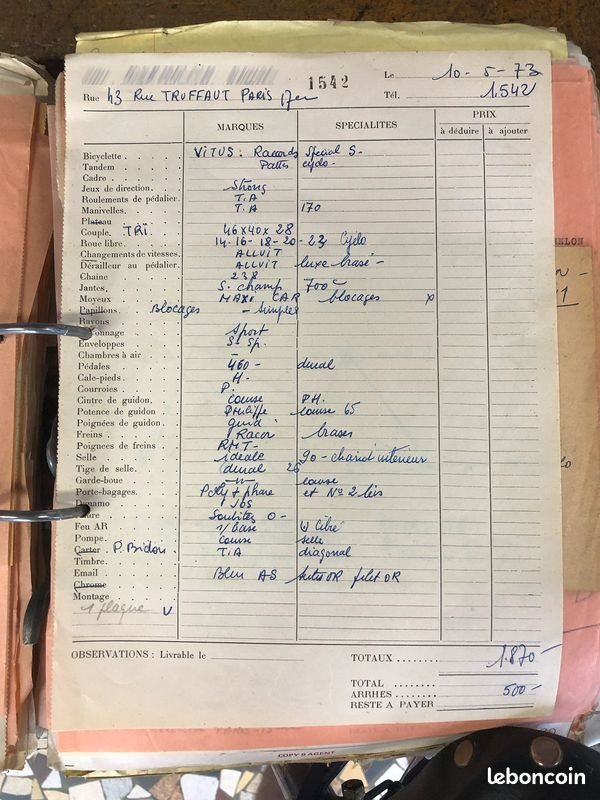 1542 Le 10-5-73
Rue 43 Rue TRUFFAUT PARIS 17er Tél. 1542
MARQUES SPECIALITES PRIX
à déduire à ajouter
Bicyclette VITUS: Racords Special S-
Tandem Pattes cyclo-
Cadre
Jeux de direction. Strong
Roulements de pédalier. T.A
Manivelles. T.A 170
Plateau
Couple. TRI. 46x40x28
Roue libre. 14-16-18-20-23 Cyclo
Changements de vitesses. ALLVIT
Dérailleur au pédalier. ALLVIT luxe brasé-
Chaine 238
Jantes, S. champ 700c
Moyeux MAXI CAR blocages x
Papillons Blocages - simples
Rayons
Sport
Enveloppes S. Sp.
Chambres à air -
Pédales 460- dural
Cale-pieds. H.
Courroies P.
Cintre de guidon. course P.H.
Potence de guidon Philippe course 65
Poignées de guidon. guid
Freins Racer brasés
Poignees de freins RMT-
Selle idéale 90-chariot intérieur
Tige de selle. dural 26
Garde-boue -"- course
Porte-bagages. Poly + phare et N° 2 bis
Dynamo JOS
Soubitez O-
Feu AR
Pompe. course selle
Carter P. Bidon. T.A diagonal
Timbre.
Email Bleu AS filet OR
Chrome
Montage
1 plaque v
OBSERVATIONS: Livrable le TOTAUX 1.870-
TOTAL
ARRHES 500-
RESTE A PAYER
COPY 8 AGENT
leboncoin